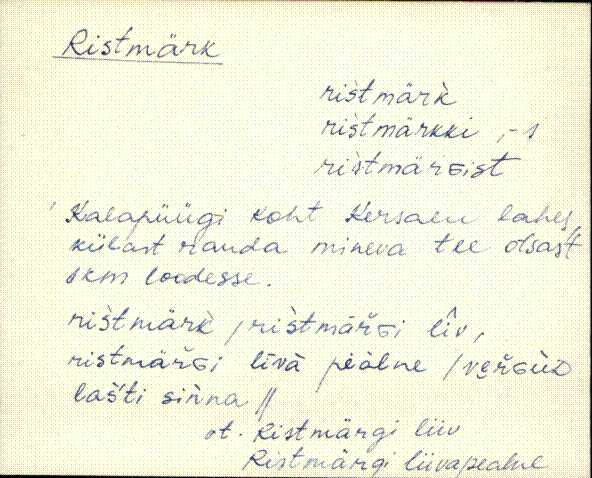 Ristmärk
ri̬stmärk̀
ri̬stmärkki, -s
ri̬stmärGist
Kalapüügi koht Kersalu lahes,
külast randa mineva tee otsast
1 km loodesse.
ri̬stmärk̀ / ri̬stmäřGi lîv,
ristmäřGi līvà peàlne / veřGùD
lašti siǹna //
vt. Ristmärgi liiv
Ristmärgi liivapealne